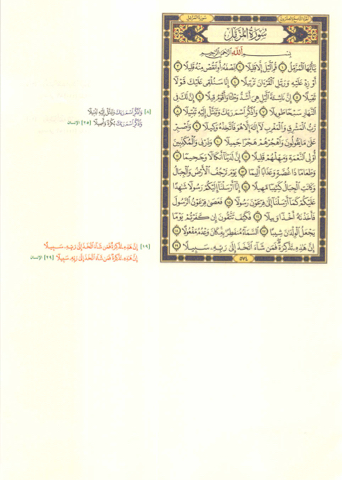 سُورَةُ المُزَّمِّل
بِسْمِ اللَّهِ الرَّحْمَٰنِ الرَّحِيمِ
يَا أَيُّهَا الْمُزَّمِّلُ ١ قُمِ اللَّيْلَ إِلَّا قَلِيلًا ٢ نِصْفَهُ أَوِ انقُصْ مِنْهُ قَلِيلًا ٣
أَوْ زِدْ عَلَيْهِ وَرَتِّلِ الْقُرْآنَ تَرْتِيلًا ٤ إِنَّا سَنُلْقِي عَلَيْكَ قَوْلًا
ثَقِيلًا ٥ إِنَّ نَاشِئَةَ اللَّيْلِ هِيَ أَشَدُّ وَطْئًا وَأَقْوَمُ قِيلًا ٦ إِنَّ لَكَ فِي
النَّهَارِ سَبْحًا طَوِيلًا ٧ وَاذْكُرِ اسْمَ رَبِّكَ وَتَبَتَّلْ إِلَيْهِ تَبْتِيلًا ٨
رَّبُّ الْمَشْرِقِ وَالْمَغْرِبِ لَا إِلَٰهَ إِلَّا هُوَ فَاتَّخِذْهُ وَكِيلًا ٩ وَاصْبِرْ
عَلَىٰ مَا يَقُولُونَ وَاهْجُرْهُمْ هَجْرًا جَمِيلًا ١٠ وَذَرْنِي وَالْمُكَذِّبِينَ
أُولِي النَّعْمَةِ وَمَهِّلْهُمْ قَلِيلًا ١١ إِنَّ لَدَيْنَا أَنكَالًا وَجَحِيمًا ١٢
وَطَعَامًا ذَا غُصَّةٍ وَعَذَابًا أَلِيمًا ١٣ يَوْمَ تَرْجُفُ الْأَرْضُ وَالْجِبَالُ
وَكَانَتِ الْجِبَالُ كَثِيبًا مَّهِيلًا ١٤ إِنَّا أَرْسَلْنَا إِلَيْكُمْ رَسُولًا شَاهِدًا
عَلَيْكُمْ كَمَا أَرْسَلْنَا إِلَىٰ فِرْعَوْنَ رَسُولًا ١٥ فَعَصَىٰ فِرْعَوْنُ الرَّسُولَ
فَأَخَذْنَاهُ أَخْذًا وَبِيلًا ١٦ فَكَيْفَ تَتَّقُونَ إِن كَفَرْتُمْ يَوْمًا
يَجْعَلُ الْوِلْدَانَ شِيبًا ١٧ السَّمَاءُ مُنفَطِرٌ بِهِ كَانَ وَعْدُهُ مَفْعُولًا ١٨
إِنَّ هَٰذِهِ تَذْكِرَةٌ فَمَن شَاءَ اتَّخَذَ إِلَىٰ رَبِّهِ سَبِيلًا ١٩
٥٧٤
[٨] وَاذْكُرِ اسْمَ رَبِّكَ وَتَبَتَّلْ إِلَيْهِ تَبْتِيلًا
وَاذْكُرِ اسْمَ رَبِّكَ بُكْرَةً وَأَصِيلًا [٢٥] الإنسان
[١٩] إِنَّ هَٰذِهِ تَذْكِرَةٌ فَمَن شَاءَ اتَّخَذَ إِلَىٰ رَبِّهِ سَبِيلًا
إِنَّ هَٰذِهِ تَذْكِرَةٌ فَمَن شَاءَ اتَّخَذَ إِلَىٰ رَبِّهِ سَبِيلًا [٢٩] الإنسان